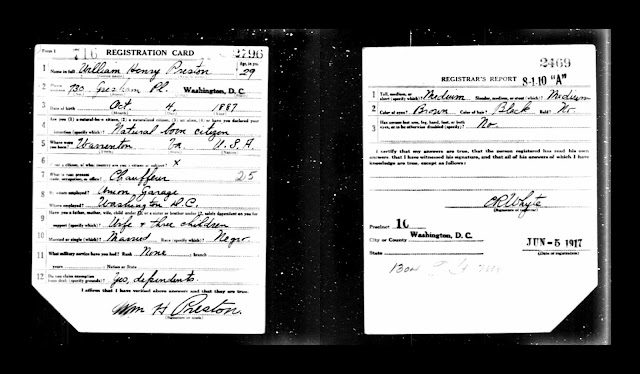 Form 1 716 REGISTRATION CARD 2796
1 Name in full William Henry Preston Age, in yrs. 29
2 730 Gresham Pl. Washington, D. C.
3 Date of birth Oct. 4, 1887
4 Are you (1) a natural-born citizen, (2) a naturalized citizen, (3) an alien, (4) or have you declared your
intention (specify which)? Natural born citizen
5 Where were you born? Warrenton Va. U.S.A.
6 If not a citizen, of what country are you a citizen or subject? X
7 What is your present trade, occupation, or office? Chauffeur 25
8 By whom employed? Union Garage
Where employed? Washington D.C.
9 Have you a father, mother, wife, child under 12, or a sister or brother under 12, solely dependent on you for
support (specify which)? Wife + three children
10 Married or single (which)? Married Race (specify which)? Negro
11 What military service have you had? Rank None branch
years Nation or State
12 Do you claim exemption from draft (specify grounds)? Yes, dependents.
I affirm that I have verified above answers and that they are true.
Wm H Preston.
(Signature or mark)
2469
REGISTRAR'S REPORT 8-1-10 "A"
1 Tall, medium, or short (specify which)? Medium Slender, medium, or stout (which)? Medium
2 Color of eyes? Brown Color of hair? Black Bald? No
3 Has person lost arm, leg, hand, foot, or both eyes, or is he otherwise disabled (specify)? No.
I certify that my answers are true, that the person registered has read his own
answers, that I have witnessed his signature, and that all of his answers of which I have
knowledge are true, except as follows:
CR Whyte
(Signature of registrar)
Precinct 10
City or County Washington, D. C.
State
JUN -5 1917
(Date of registration)